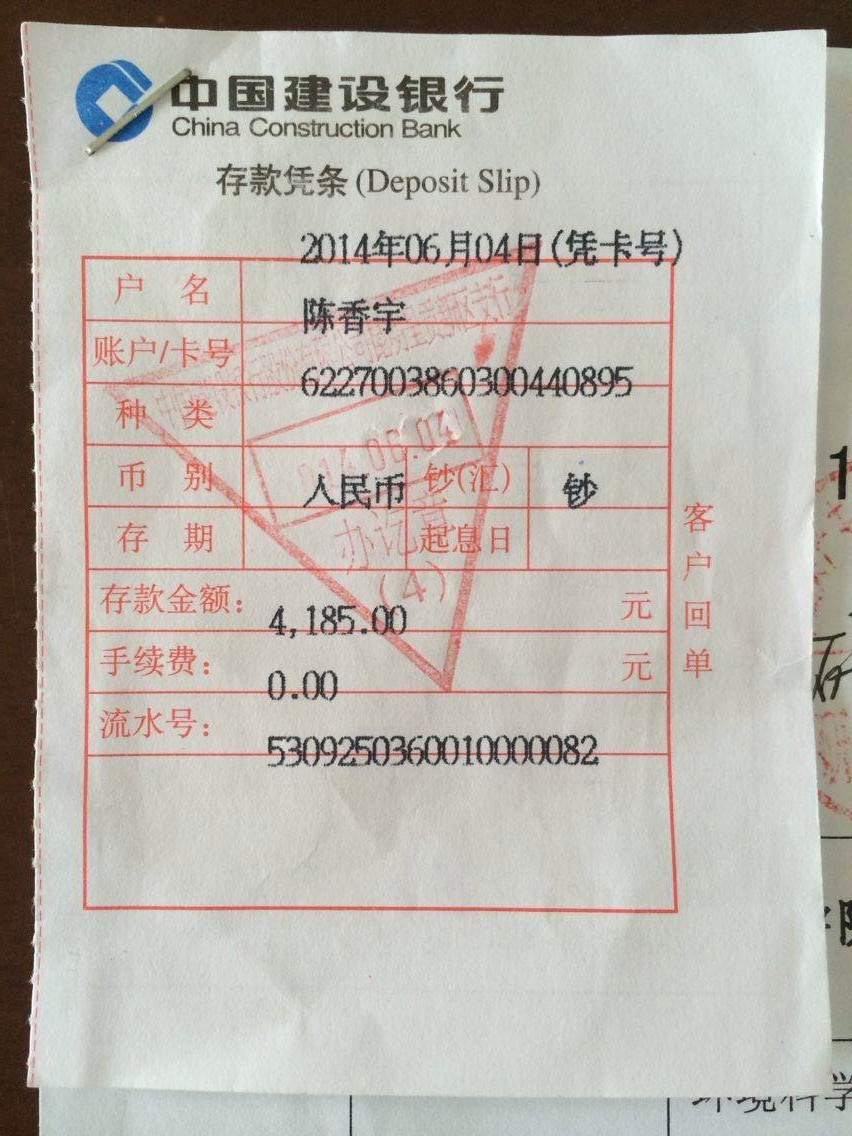 中国建设银行
China Construction Bank
存款凭条 (Deposit Slip)
2014年06月04日(凭卡号)
户 名 陈香宇
账户/卡号 6227003860300440895
种 类
币 别 人民币 钞(汇) 钞
存 期 起息日
存款金额: 4,185.00 元
手续费: 0.00 元
流水号: 5309250360010000082
客户回单
办讫章
(4)
环境科学